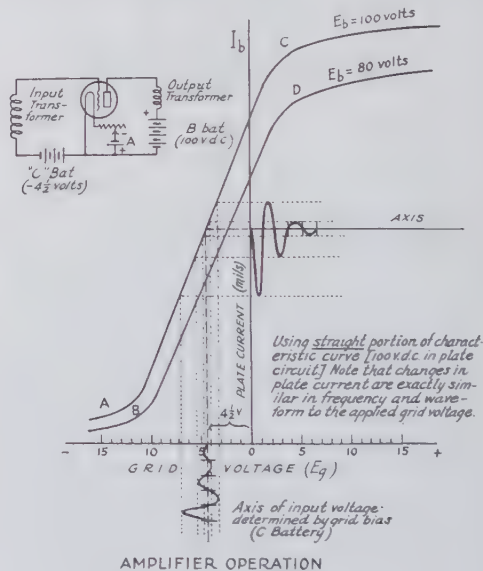 I_b
C
E_b = 100 volts
D
E_b = 80 volts
Input
Trans-
former
Output
Transformer
+
B bat
(100 v.d.c)
-
A
+
"C" Bat
(-4½ volts)
AXIS
PLATE CURRENT (mils)
Using straight portion of charact-
eristic curve [100 v.d.c. in plate
circuit] Note that changes in
plate current are exactly sim-
ilar in frequency and wave-
form to the applied grid voltage.
A
B
4½ v
- 15 10 5 0 5 10 15 +
GRID VOLTAGE (Eg)
Axis of input voltage-
determined by grid bias
(C Battery)
AMPLIFIER OPERATION